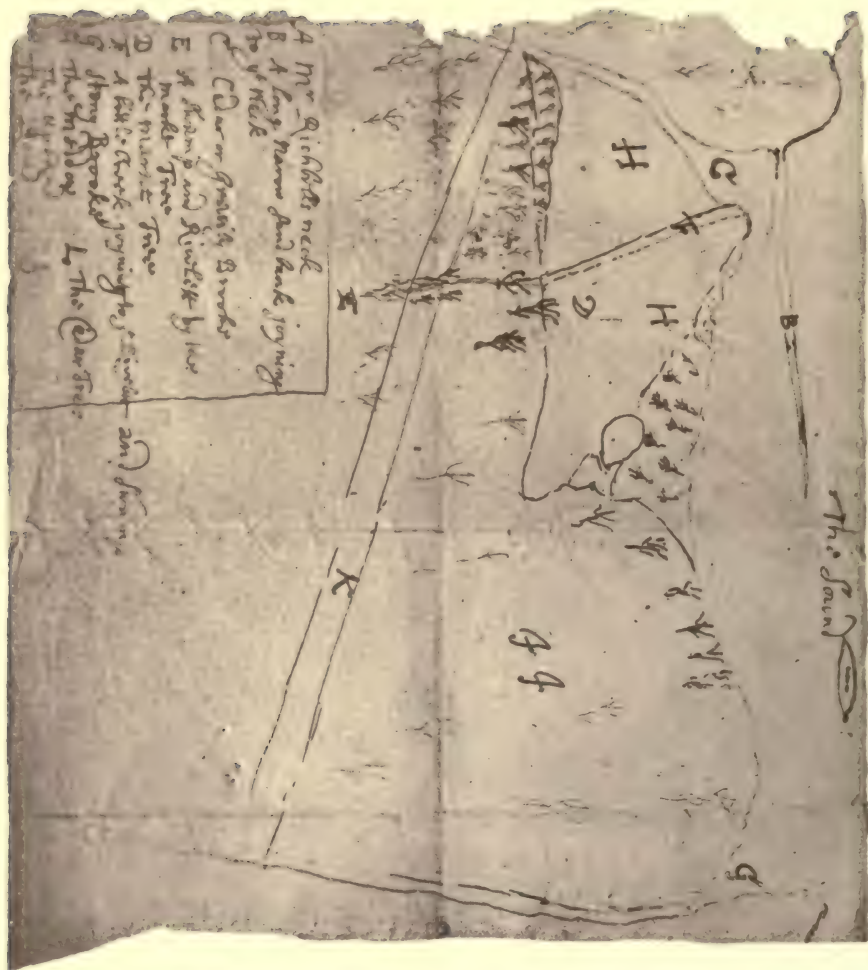 A Mr Richbells neck
B A long Narrow sand bank joyning
to ye Neck
C Cedar or Gravelly Brooke
E A swamp and Rivelett by the
marke Tree
D The markt Tree
F A little Creek joyning to ye Rivelet and swamp
G Stony Brooke
The Medow
L The Cedar Tree
The
The
The Sound
B
C
H
F
H
D
E
K
J J
G